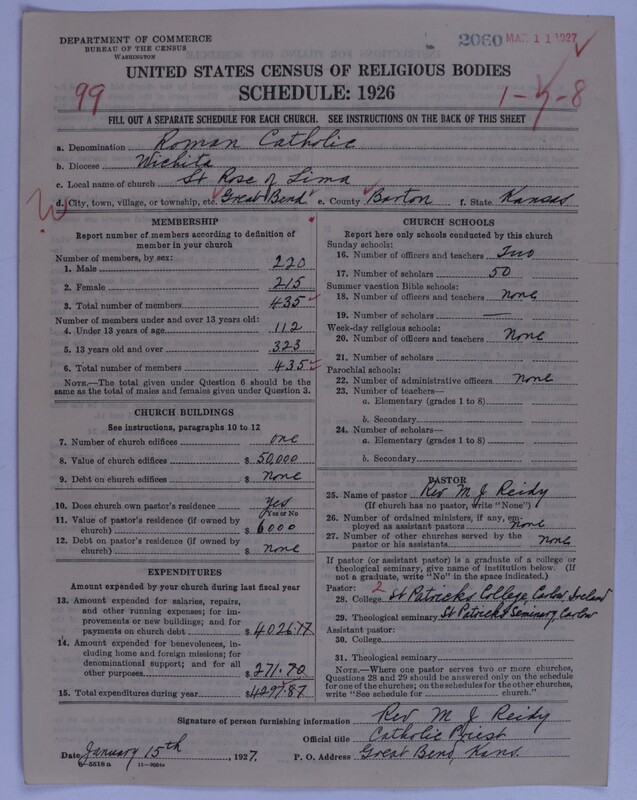 DEPARTMENT OF COMMERCE
BUREAU OF THE CENSUS
WASHINGTON
2060 MAR 11 1927
UNITED STATES CENSUS OF RELIGIOUS BODIES
99 SCHEDULE: 1926 1-5-8
FILL OUT A SEPARATE SCHEDULE FOR EACH CHURCH. SEE INSTRUCTIONS ON THE BACK OF THIS SHEET
a. Denomination Roman Catholic
b. Diocese Wichita
c. Local name of church St Rose of Lima
d. City, town, village, or township, etc. Great Bend e. County Barton f. State Kansas
MEMBERSHIP
Report number of members according to definition of
member in your church
Number of members, by sex:
1. Male 220
2. Female 215
3. Total number of members 435
Number of members under and over 13 years old:
4. Under 13 years of age 112
5. 13 years old and over 323
6. Total number of members 435
NOTE.—The total given under Question 6 should be
the same as the total of males and females given under Question 3.
CHURCH BUILDINGS
See instructions, paragraphs 10 to 12
7. Number of church edifices one
8. Value of church edifices $ 50,000
9. Debt on church edifices $ none
10. Does church own pastor's residence yes
Yes or No
11. Value of pastor's residence (if owned by
church) $ 6000
12. Debt on pastor's residence (if owned by
church) $ none
EXPENDITURES
Amount expended by your church during last fiscal year
13. Amount expended for salaries, repairs,
and other running expenses; for im-
provements or new buildings; and for
payments on church debt $ 4026.17
14. Amount expended for benevolences, in-
cluding home and foreign missions; for
denominational support; and for all
other purposes $ 271.70
15. Total expenditures during year $ 4297.87
CHURCH SCHOOLS
Report here only schools conducted by this church
Sunday schools:
16. Number of officers and teachers Two
17. Number of scholars 50
Summer vacation Bible schools:
18. Number of officers and teachers none
19. Number of scholars —
Week-day religious schools:
20. Number of officers and teachers none
21. Number of scholars
Parochial schools:
22. Number of administrative officers none
23. Number of teachers—
a. Elementary (grades 1 to 8)
b. Secondary
24. Number of scholars—
a. Elementary (grades 1 to 8)
b. Secondary
PASTOR
25. Name of pastor Rev M J Reidy
(If church has no pastor, write "None")
26. Number of ordained ministers, if any, em-
ployed as assistant pastors none
27. Number of other churches served by the
pastor or his assistants none
If pastor (or assistant pastor) is a graduate of a college or
theological seminary, give name of institution below. (If
not a graduate, write "No" in the space indicated.)
Pastor: 2
28. College St Patricks College Carlow Ireland
29. Theological seminary St Patricks Seminary Carlow
Assistant pastor:
30. College
31. Theological seminary
NOTE.—Where one pastor serves two or more churches,
Questions 28 and 29 should be answered only on the schedule
for one of the churches; on the schedules for the other churches,
write "See schedule for church."
Signature of person furnishing information Rev M J Reidy
Official title Catholic Priest
Date January 15th, 1927. P. O. Address Great Bend, Kans.